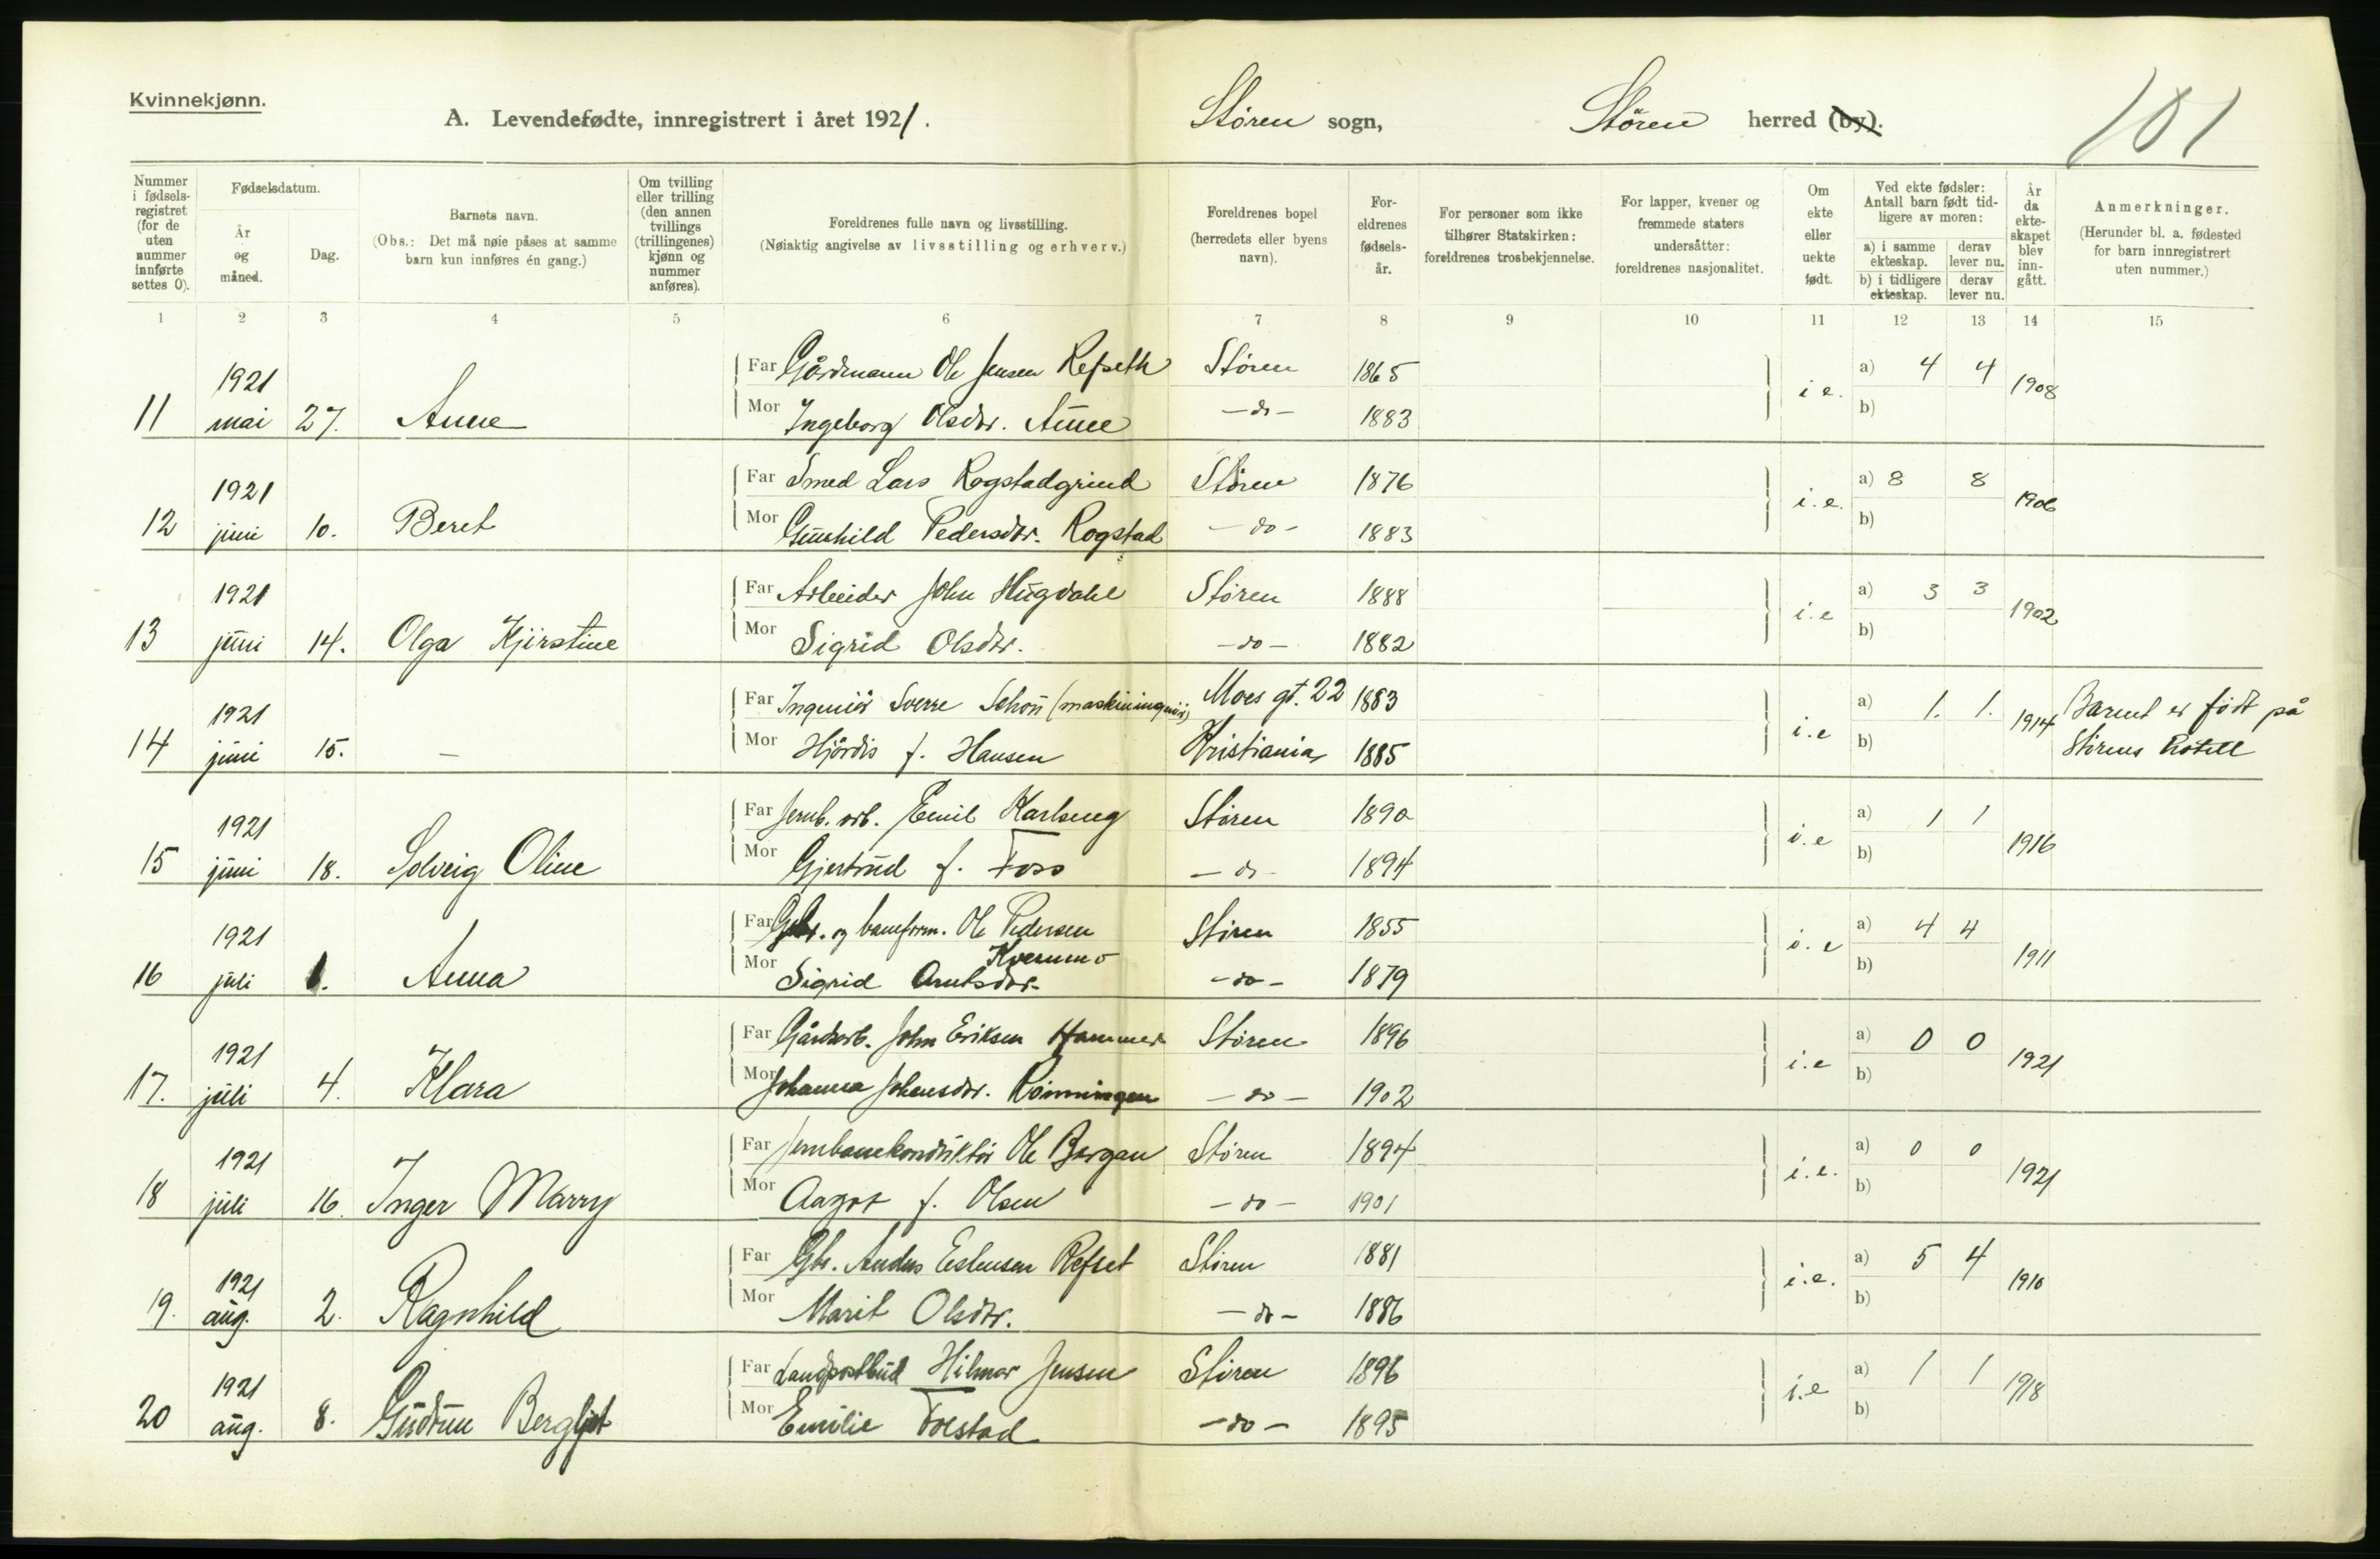 Kvinnekjønn.
A. Levendefødte, innregistrert i året 1921. Støren sogn, Støren herred (by). 101
Nummer i fødsels-registret (for de uten nummer innførte settes 0).
Fødselsdatum.
År og måned.
Dag.
Barnets navn.
(Obs.: Det må nøie påses at samme barn kun innføres én gang.)
Om tvilling eller trilling (den annen tvillings (trillingenes) kjønn og nummer anføres).
Foreldrenes fulle navn og livsstilling.
(Nøiaktig angivelse av livsstilling og erhverv.)
Foreldrenes bopel (herredets eller byens navn).
For-eldrenes fødsels-år.
For personer som ikke tilhører Statskirken: foreldrenes trosbekjennelse.
For lapper, kvener og fremmede staters undersåtter: foreldrenes nasjonalitet.
Om ekte eller uekte født.
Ved ekte fødsler: Antall barn født tid-ligere av moren:
a) i samme ekteskap.
derav lever nu.
b) i tidligere ekteskap.
derav lever nu.
År da ekte-skapet blev inn-gått.
Anmerkninger.
(Herunder bl. a. fødested for barn innregistrert uten nummer.)
1 2 3 4 5 6 7 8 9 10 11 12 13 14 15
1921 Far Gårdmann Ole Jensen Refseth Støren 1865 i e. a) 4 4 1908
11 mai 27. Anne Mor Ingeborg Olsdtr. Aune -do- 1883 b)
1921 Far Smed Lars Rogstadgrind Støren 1876 i.e. a) 8 8 1906
12 juni 10. Beret Mor Gunhild Pedersdtr. Rogstad -do- 1883 b)
1921 Far Arbeider John Hugdahl Støren 1888 i.e a) 3 3 1902
13 juni 14. Olga Kjirstine Mor Sigrid Olsdtr. -do- 1882 b)
1921 Far Ingeniør Sverre Schou (maskiningeniør) Moes gt. 22 1883 i.e a) 1. 1. 1914 Barnet er født på
14 juni 15. - Mor Hjørdis f. Hansen Kristiania 1885 b) Størens Hotell
1921 Far Jernb. arb. Emil Karlseng Støren 1890 i.e a) 1 1 1916
15 juni 18. Solveig Oline Mor Gjertrud f. Foss -do- 1894 b)
1921 Far Gbr. og baneform. Ole Pedersen Kvernmo Støren 1855 i.e a) 4 4 1911
16 juli 1. Anna Mor Sigrid Arntsdtr. -do- 1879 b)
1921 Far Gårdarb. John Eriksen Hammer Støren 1896 i.e a) 0 0 1921
17. juli 4. Klara Mor Johanna Johensdtr. Rønningen -do- 1902 b)
1921 Far Jernbanekonduktør Ole Bargan Støren 1894 i.e. a) 0 0 1921
18 juli 16. Inger Marry Mor Aagot f. Olsen -do- 1901 b)
1921 Far Gbr. Anders Estensen Refset Støren 1881 i.e. a) 5 4 1910
19. aug. 2. Ragnhild Mor Marit Olsdtr. -do- 1886 b)
1921 Far Landpostbud Hilmar Jensen Støren 1896 i.e a) 1 1 1918
20 aug. 8. Gudrun Bergljot Mor Emilie Folstad -do- 1895 b)